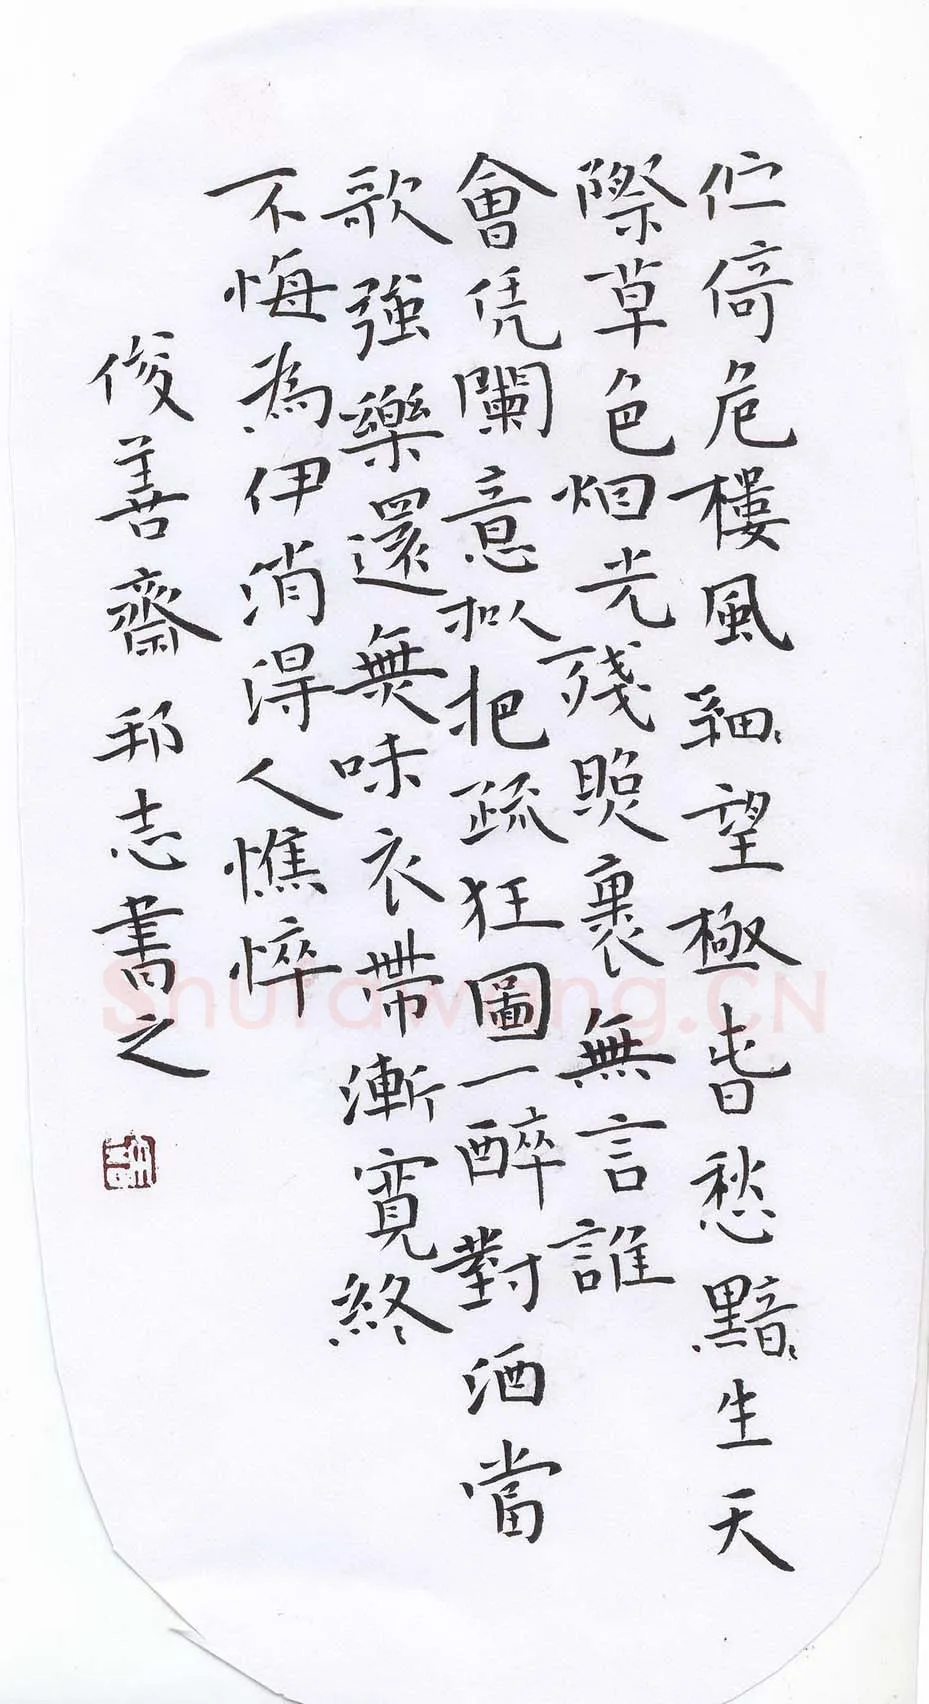 伫倚危樓風細〻望極春愁黯〻生天
際草色烟光殘照裏無言誰
會凭闌意拟把疏狂圖一醉對酒當
歌強樂還無味衣帶漸寬終
不悔為伊消得人憔悴
俊善齋邦志書之
Shufawang.CN